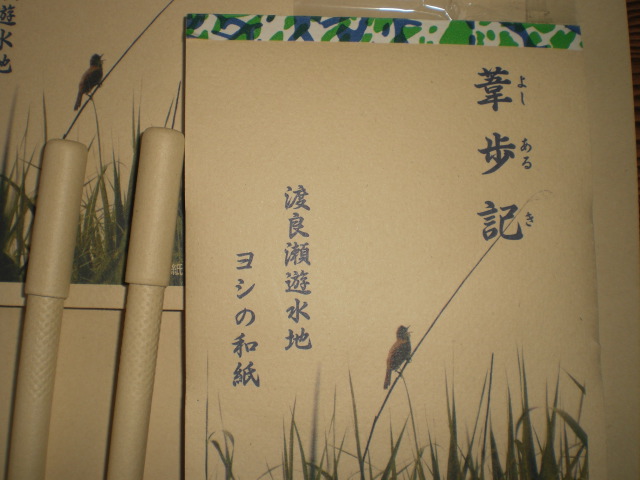 葦歩記
よし ある き
渡良瀬遊水地
ヨシの和紙
遊水地
紙